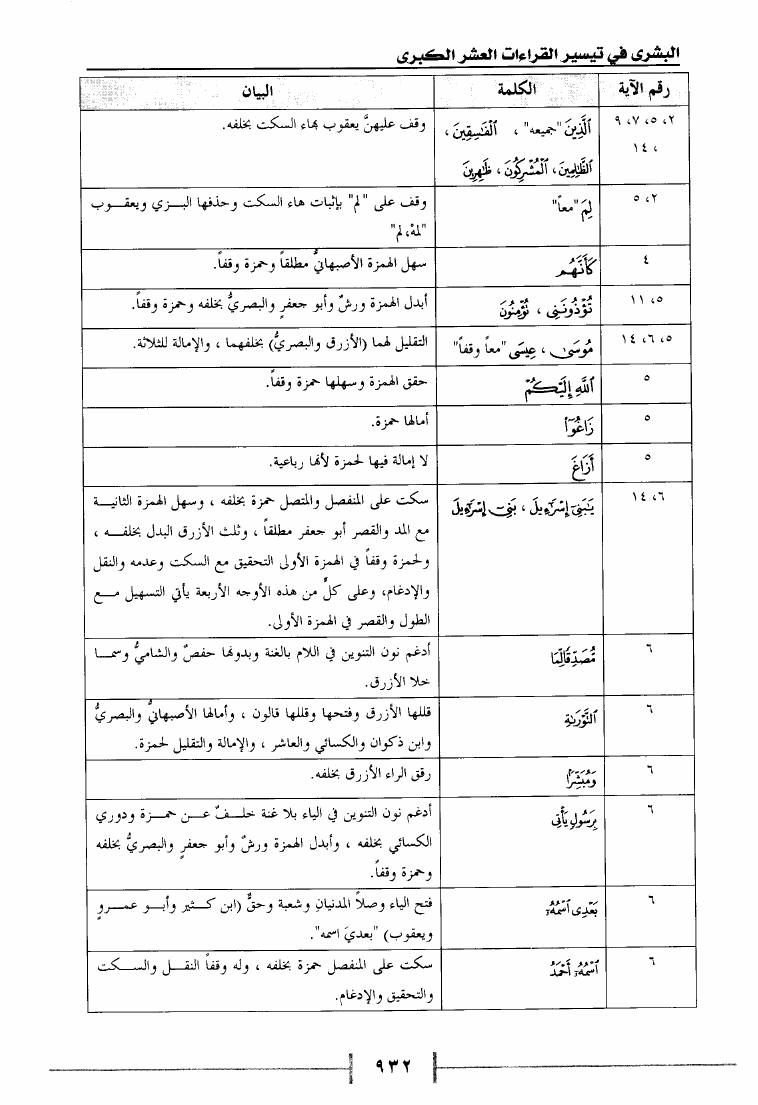 البشرى في تيسير القراءات العشر الكبرى
رقم الآية الكلمة البيان
٢، ٥، ٧، ٩ ٱلَّذِينَ "جميعه" ، ٱلْفَٰسِقِينَ، وقف عليهنَّ يعقوب بهاء السكت بخلفه.
، ١٤
ٱلظَّٰلِمِينَ، ٱلْمُشْرِكُونَ، ظَٰهِرِينَ
٢، ٥ لِمَ "معاً" وقف على "لم" بإثبات هاء السكت وحذفها البـزي ويعقـوب
"لمهْ، لم"
٤ كَأَنَّهُم سهل الهمزة الأصبهانيُّ مطلقاً وحمزة وقفاً.
٥، ١١ تُؤْذُونَنِى ، تُؤْمِنُونَ أبدل الهمزة ورشٌ وأبو جعفرٍ والبصريُّ بخلفه وحمزة وقفاً.
٥، ٦، ١٤ مُوسَىٰ ، عِيسَى "معاً وقفاً" التقليل لهما (الأزرق والبصريُّ) بخلفهما ، والإمالة للثلاثة.
٥ ٱللَّهِ إِلَيْكُمْ حقق الهمزة وسهلها حمزة وقفاً.
٥ زَاغُوٓا۟ أمالها حمزة.
٥ أَزَاغَ لا إمالة فيها لحمزة لأنها رباعية.
٦، ١٤ يَٰبَنِىٓ إِسْرَٰٓءِيلَ ، بَنِىٓ إِسْرَٰٓءِيلَ سكت على المنفصل والمتصل حمزة بخلفه ، وسهل الهمزة الثانيـة
مع المد والقصر أبو جعفر مطلقاً ، وثلث الأزرق البدل بخلفـه ،
ولحمزة وقفاً في الهمزة الأولى التحقيق مع السكت وعدمه والنقل
والإدغام، وعلى كلٍّ من هذه الأوجه الأربعة يأتي التسهيل مـع
الطول والقصر في الهمزة الأولى.
٦ مُّصَدِّقًا لِّمَا أدغم نون التنوين في اللام بالغنة وبدونها حفصٌ والشاميُّ وسمـا
خلا الأزرق.
٦ ٱلتَّوْرَىٰةِ قللها الأزرق وفتحها وقللها قالون ، وأمالها الأصبهانيُّ والبصريُّ
وابن ذكوان والكسائي والعاشر ، والإمالة والتقليل لحمزة.
٦ وَمُبَشِّرًۢا رقق الراء الأزرق بخلفه.
٦ بِرَسُولٍ يَأْتِى أدغم نون التنوين في الياء بلا غنة خلـفٌ عـن حمـزة ودوري
الكسائي بخلفه ، وأبدل الهمزة ورشٌ وأبو جعفرٍ والبصريُّ بخلفه
وحمزة وقفاً.
٦ بَعْدِى ٱسْمُهُۥٓ فتح الياء وصلاً المدنيانِ وشعبة وحقٌّ (ابن كـثير وأبـو عمـروٍ
ويعقوب) "بعديَ اسمه".
٦ ٱسْمُهُۥٓ أَحْمَدُ سكت على المنفصل حمزة بخلفه ، وله وقفاً النقـل والسـكت
والتحقيق والإدغام.
٩٣٢